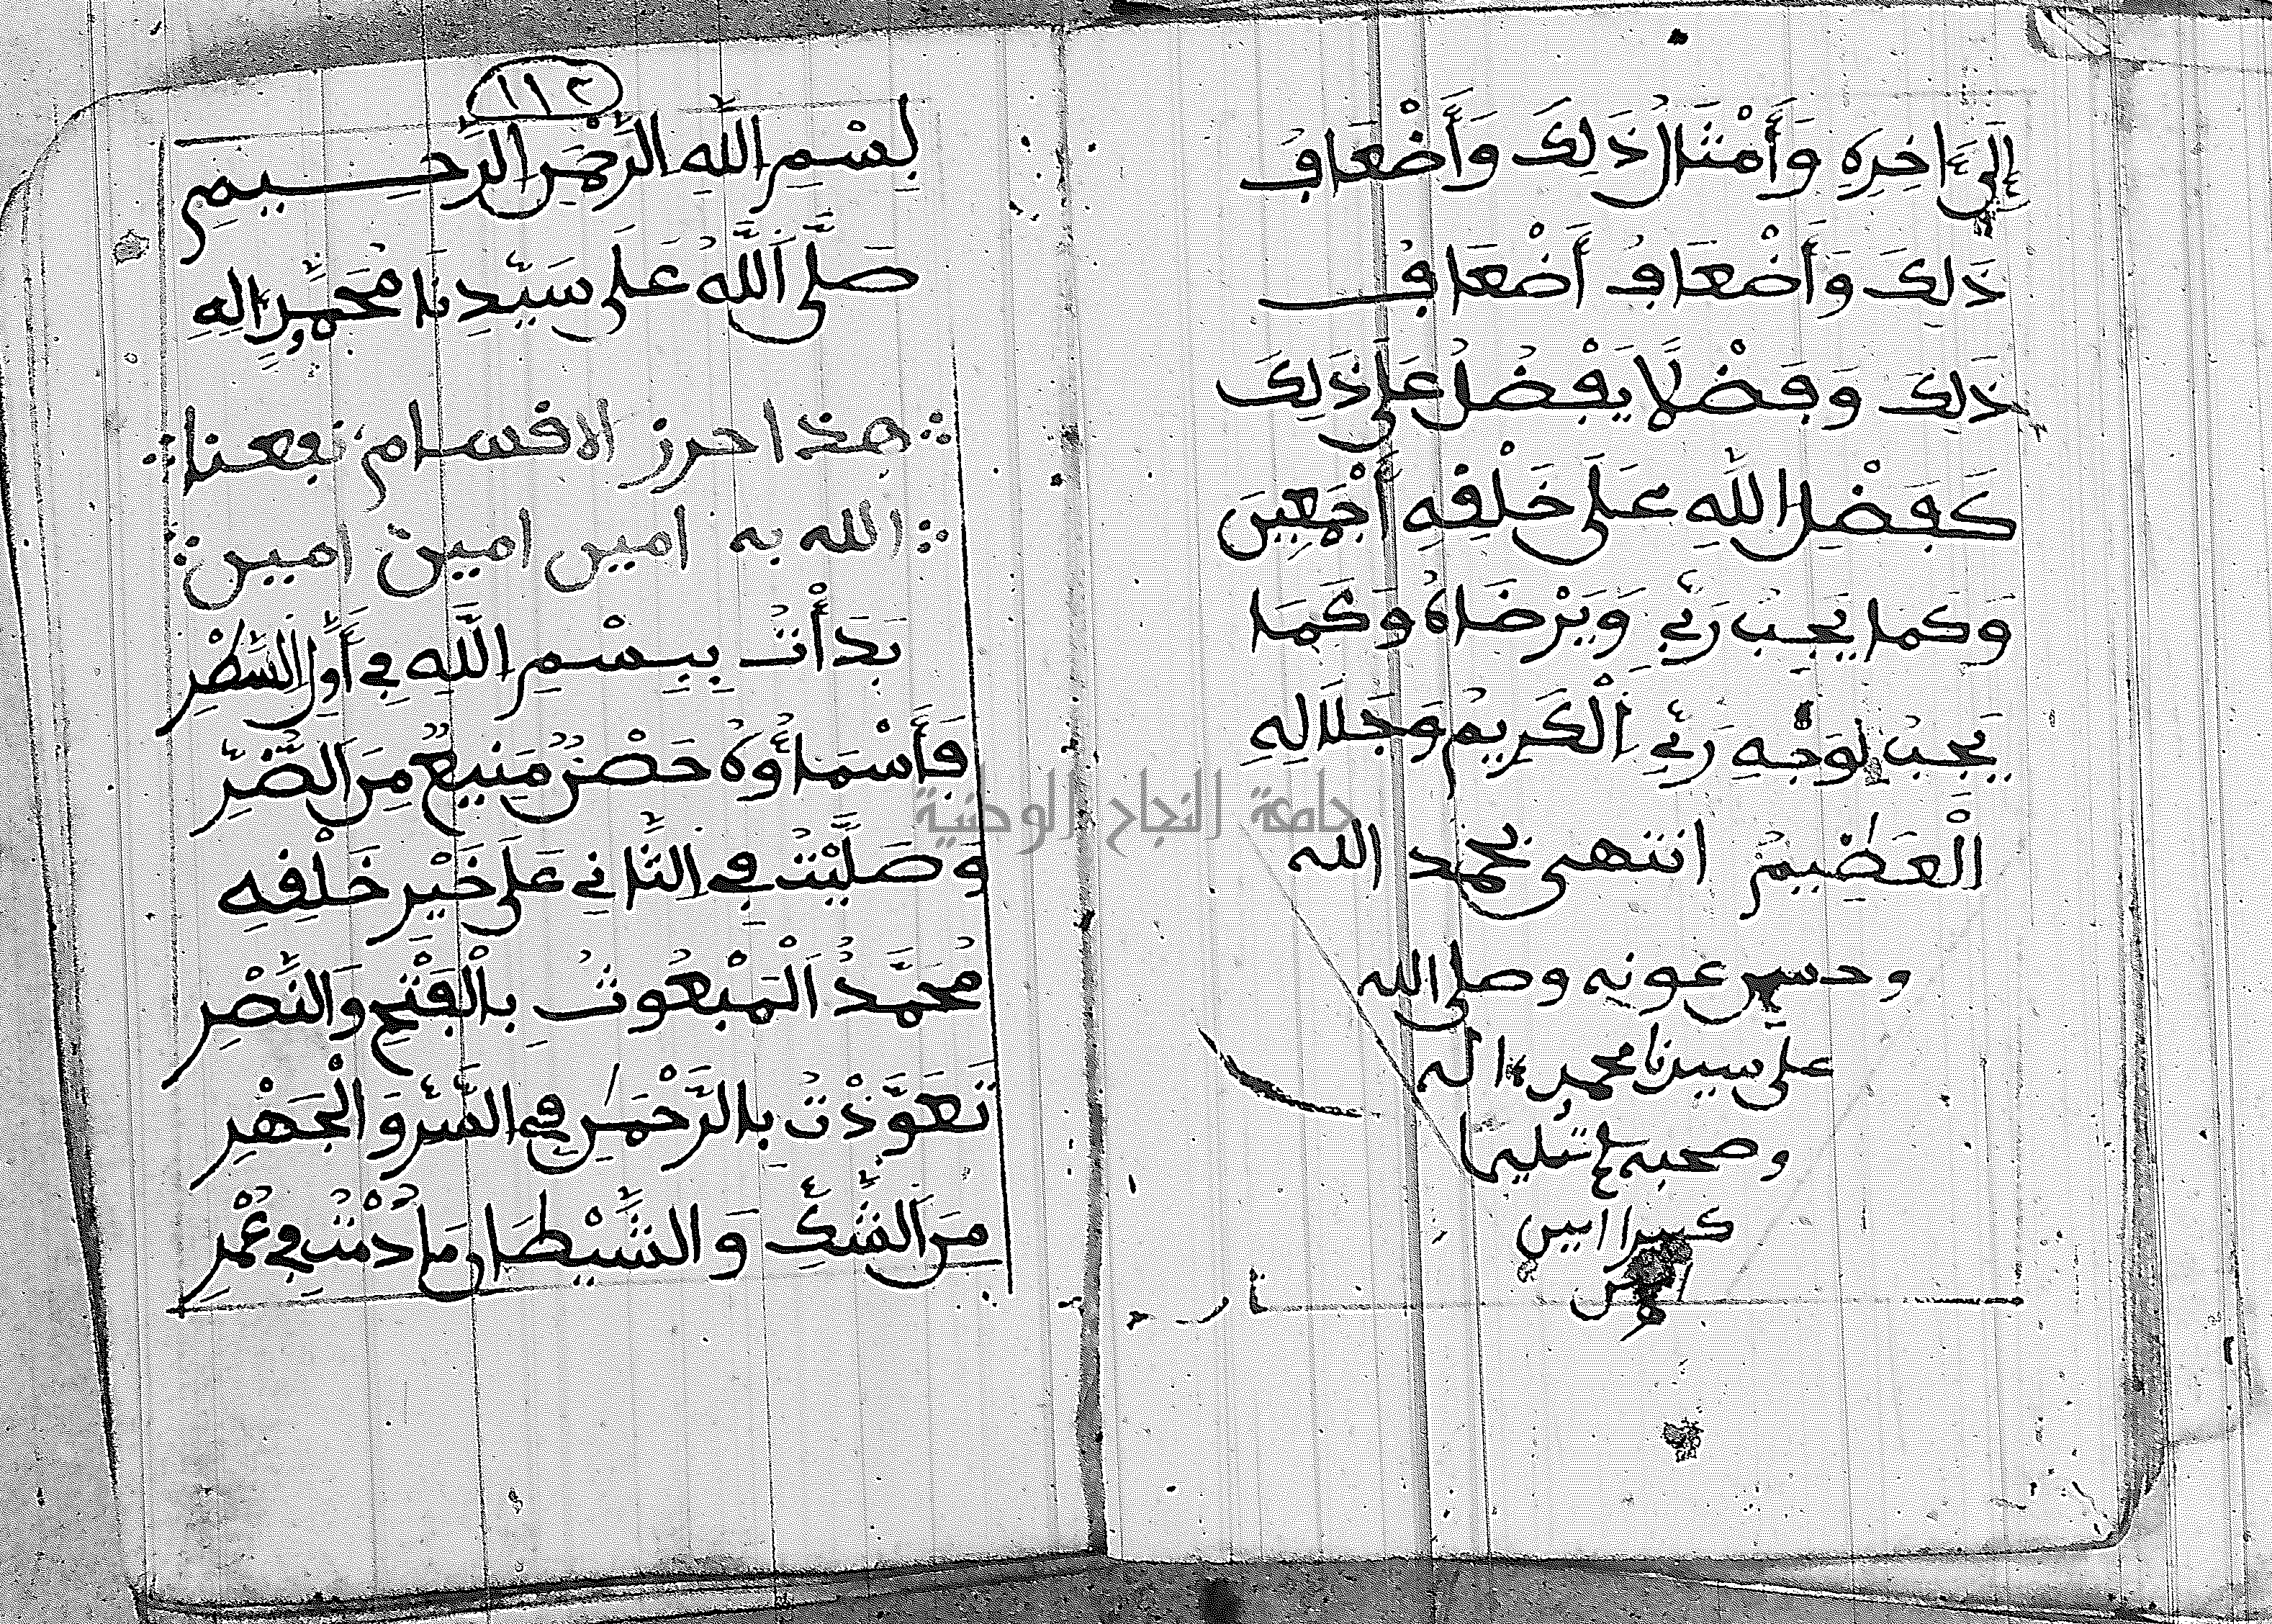 إِلَىٰ ءَاخِرِهِ وَأَمْثَالُ ذَلِكَ وَأَضْعَافُ
ذَلِكَ وَأَضْعَافُ أَضْعَافِ
ذَلِكَ وَفَضْلًا يَفْضُلُ عَلَى ذَلِكَ
كَفَضْلِ اللَّهِ عَلَى خَلْقِهِ أَجْمَعِينَ
وَكَمَا يُحِبُّ رَبِّي وَيَرْضَاهُ وَكَمَا
يُحِبُّ لِوَجْهِ رَبِّي الْكَرِيمِ وَجَلَالِهِ
الْعَظِيمِ انتهى بحمد الله
وحسن عونه وصلى الله
على سيدنا محمد واله
وصحبه وسلم تسليما
كثيرا امين
امين
١١٢
بِسْمِ اللَّهِ الرَّحْمَنِ الرَّحِيمِ
صَلَّى اللَّهُ عَلَى سَيِّدِنَا مُحَمَّدٍ وَآلِهِ
هذا حرز الاقسام نفعنا
الله به امين امين امين
بَدَأْتُ بِبِسْمِ اللَّهِ فِي أَوَّلِ السَّطْرِ
فَأَسْمَاؤُهُ حَصْنٌ مَنِيعٌ مِنَ الضُّرِّ
وَصَلَّيْتُ فِي الثَّانِي عَلَى خَيْرِ خَلْقِهِ
مُحَمَّدُ الْمَبْعُوثُ بِالْفَتْحِ وَالنَّصْرِ
تَعَوَّذْتُ بِالرَّحْمَنِ فِي السِّرِّ وَالْجَهْرِ
مِنَ الشَّكِّ وَالشَّيْطَانِ مَا دُمْتُ فِي عُمْرِ
جامعة النجاح الوطنية